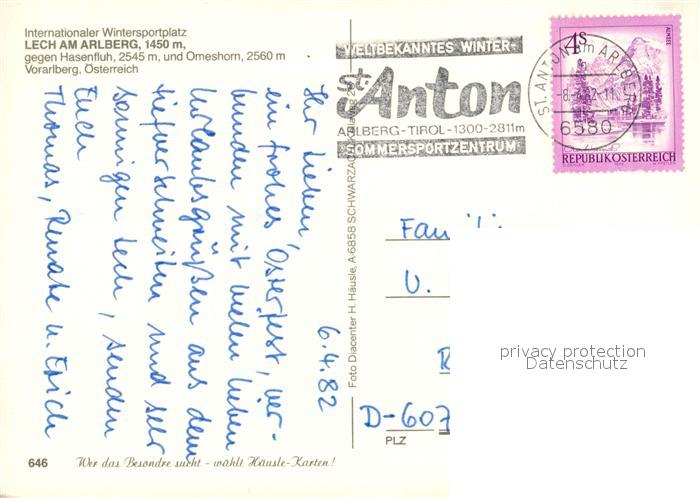 Internationaler Wintersportplatz
LECH AM ARLBERG, 1450 m,
gegen Hasenfluh, 2545 m, und Omeshorn, 2560 m
Vorarlberg, Österreich
6.4.82
Ihr Lieben,
ein frohes Osterfest, ver-
bunden mit vielen lieben
Urlaubsgrüßen aus dem
tiefverschneiten und sehr
sonnigen Lech, senden
Euch
Thomas, Renate u. Erich
646
Wer das Besondre sucht - wählt Häusle-Karten!
Foto Diacenter H. Häusle, A-6858 SCHWARZACH
WELTBEKANNTES WINTER-
St. Anton
ARLBERG-TIROL-1300-2811m
SOMMERSPORTZENTRUM
ST. ANTON am ARLBERG
6580
4S
ALMSEE
REPUBLIK ÖSTERREICH
Fam
U.
D-607
PLZ
privacy protection
Datenschutz